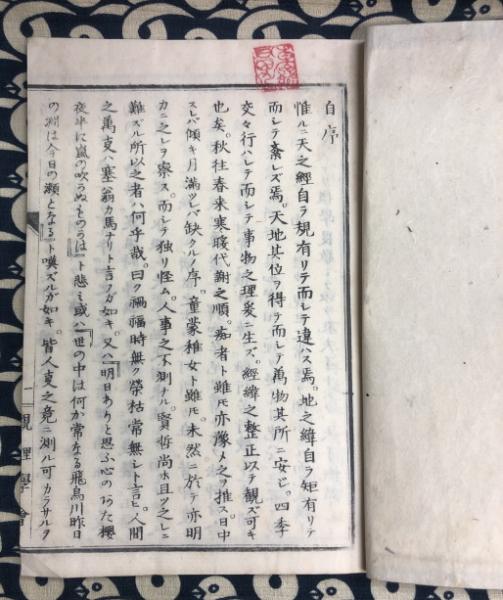 自序
惟ルニ天之經自ラ規有リテ而レテ違ハス焉。地之緯自ラ矩有リテ
而レテ紊レズ焉。天地其位ヲ得テ而レテ萬物其所ニ安ビ。四季
交々行ハレテ而レテ事物之理爰ニ生ズ。經緯之整正以テ觀ズ可キ
也矣。秋往春来寒暖代謝之順。痴者ト雖モ亦豫メ之ヲ推ス。日中
スレバ傾キ月滿ツレバ缺クル之序。童蒙稚女ト雖モ。未然ニ於テ亦明
カニ之レヲ察ス。而レテ独リ怪ム。人事之不測ナル。賢哲尚ホ且ツ之レニ
難ズル所以之者ハ何乎哉。曰ク禍福時無ク榮枯常無シト言ヒ。人間
之萬事ハ塞翁カ馬ナリト言フガ如キ。又ハ『明日ありと思ふ心のあた櫻
夜半に嵐の吹かぬものかは』ト悲ミ或ハ『世の中は何か常なる飛鳥川昨日
の淵は今日の瀬となる』ト嘆ズルガ如キ。皆人事之竟ニ測ル可カラサルヲ
一
觀理學會